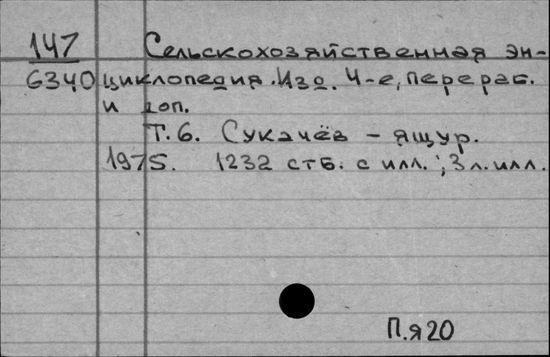 147 Сельскохозяйственная эн-
6340 циклопедия. Изд. 4-е, перераб.
и доп.
Т. 6. Сукачёв - ящур.
1975. 1232 стб. с илл.; 3 л. илл.
П.я20